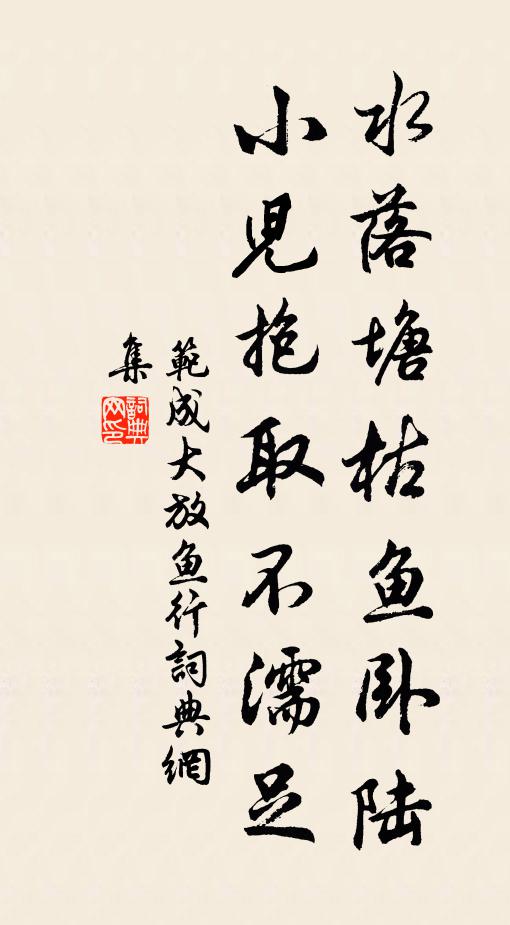 水落塘枯鱼卧陆
小児抱取不濡足
範成大放鱼行詞典網
集
詞典网印